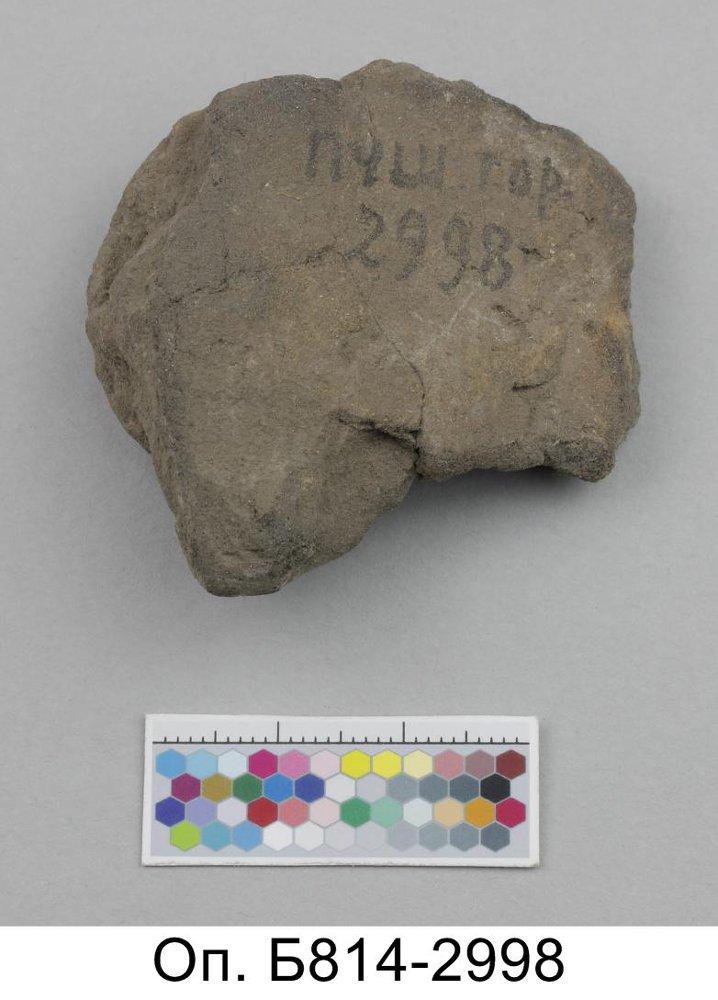 пуш. гор.
2998
Оп. Б814-2998